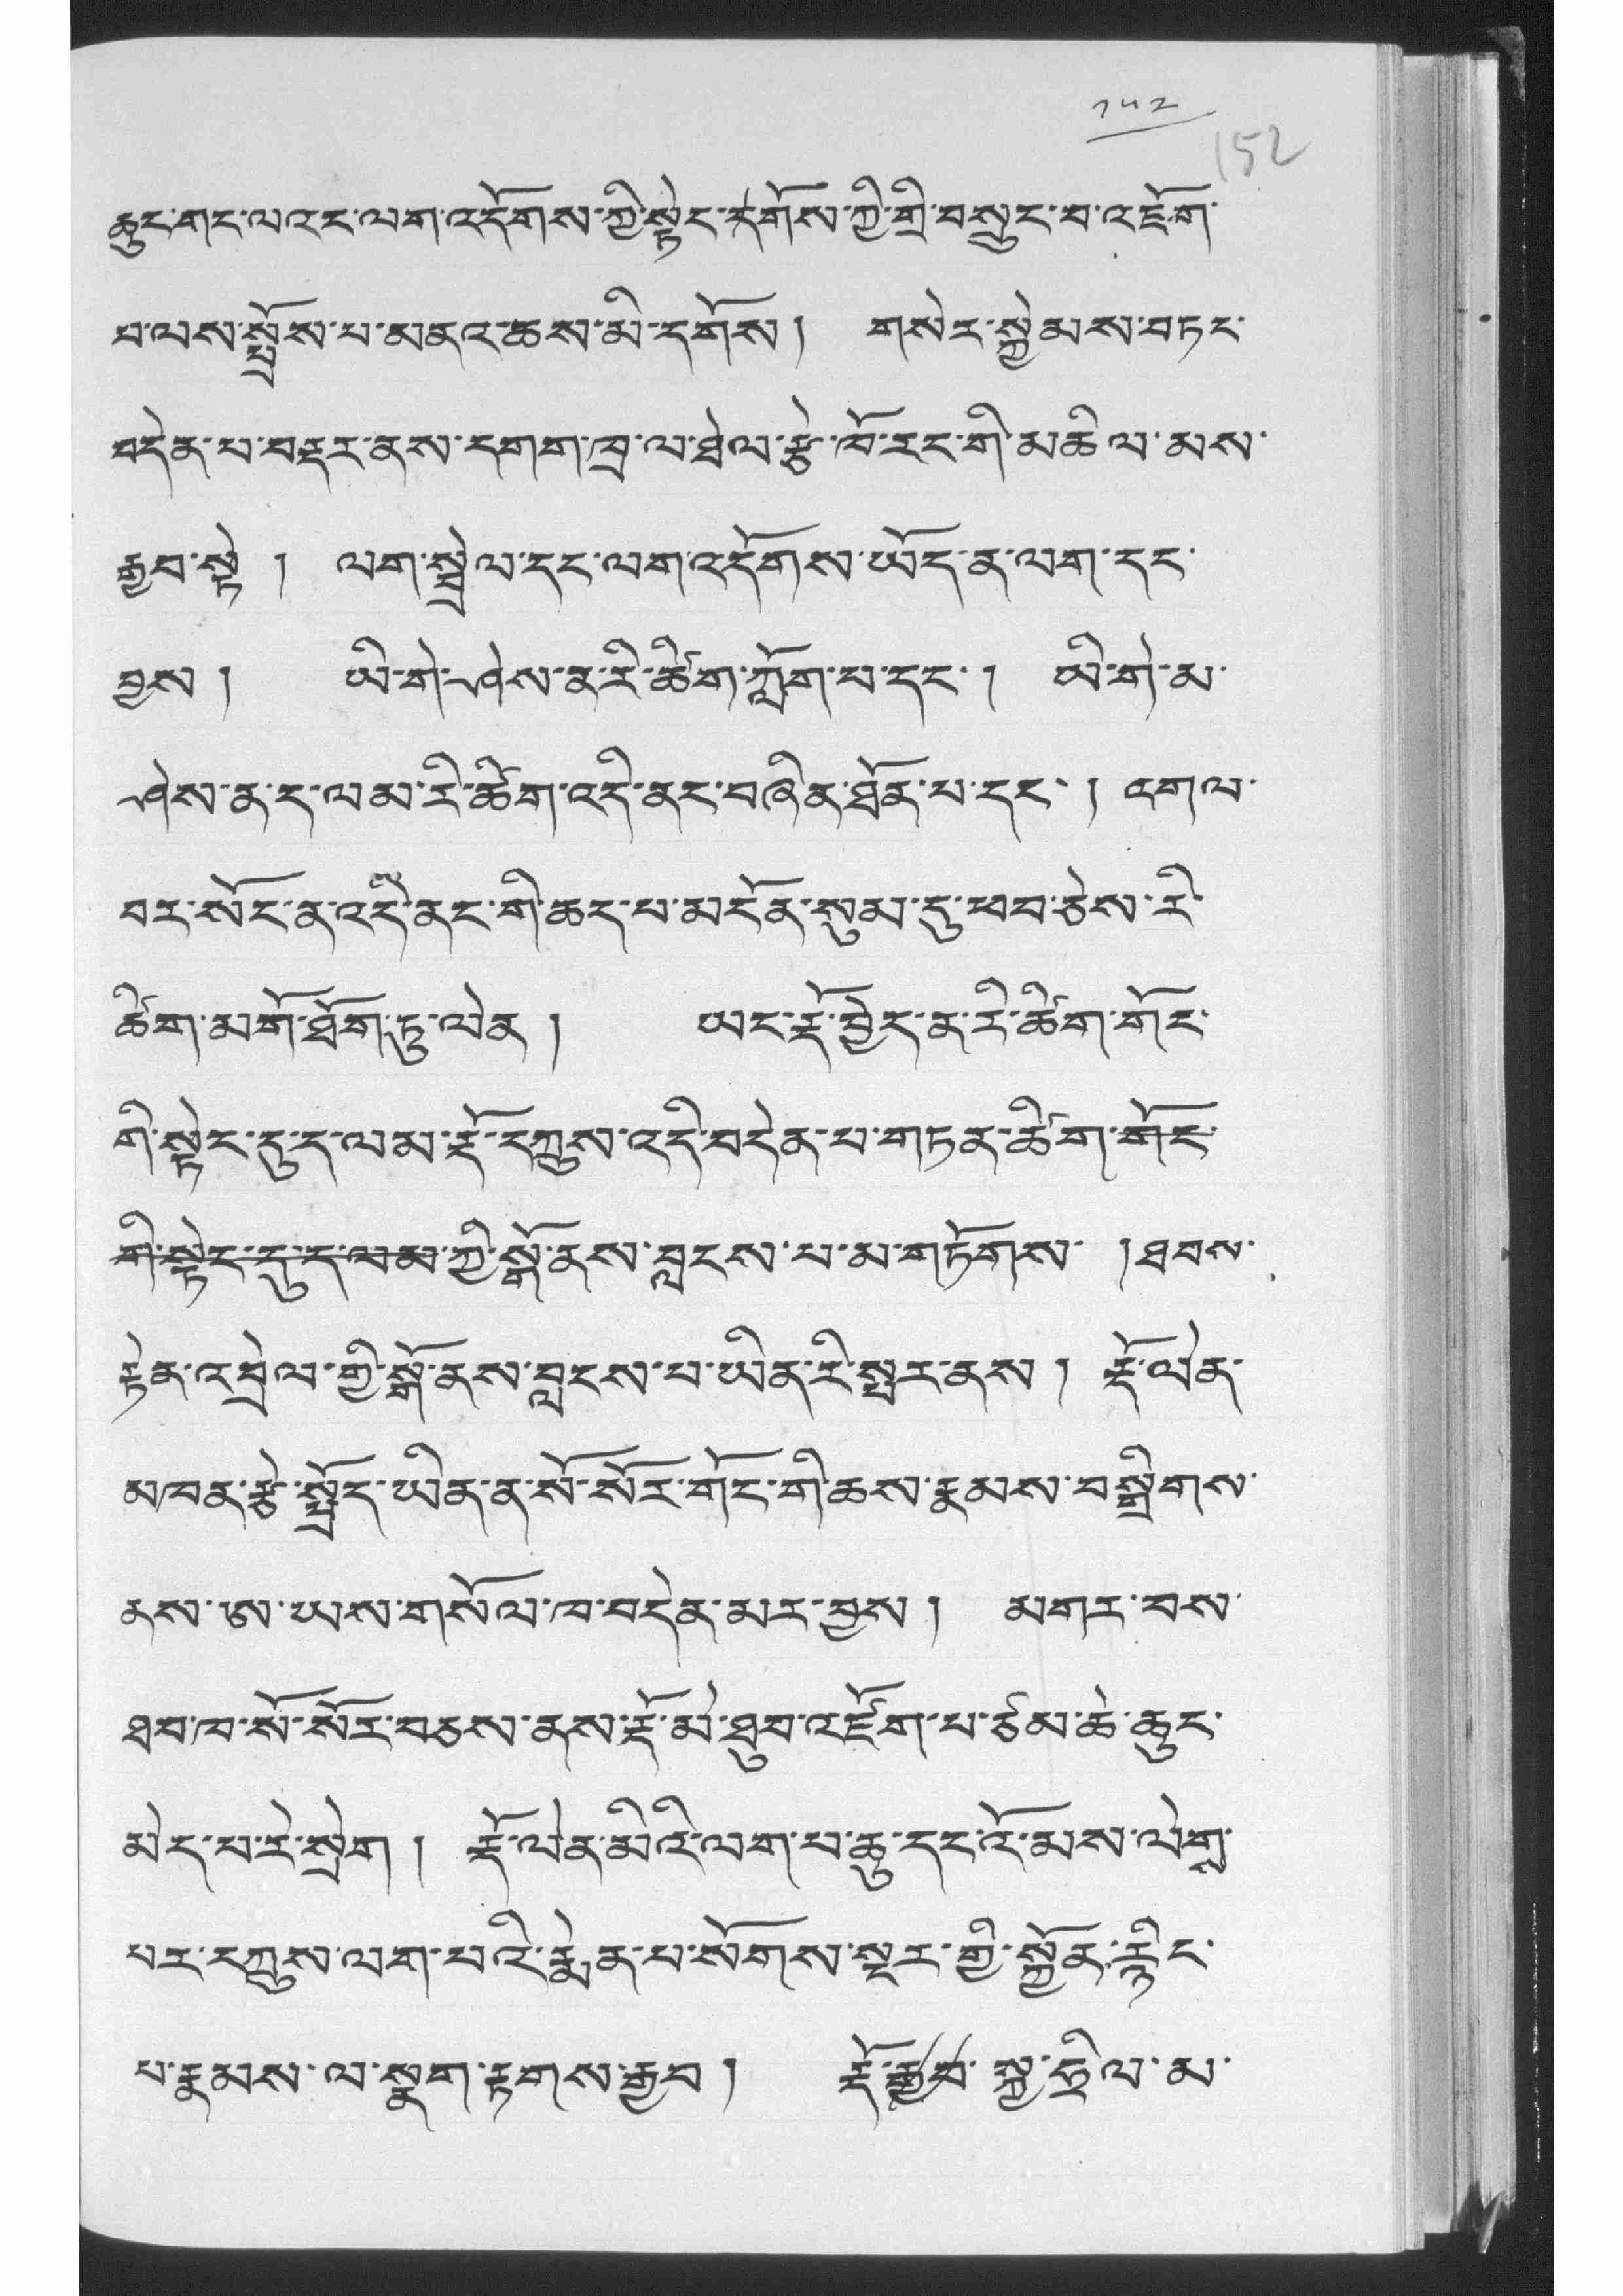 ༡༥༢
152
ཆུང་གང་ལའང་ལག་འདོགས་ཀྱི་སྟེང་དགོས་ཀྱི་གྲི་བསྲུང་བ་འཇོག་
བ་ལས་སྤྲོས་པ་མནའ་ཆས་མི་དགོས། གསེར་སྐྱེམས་བཏང་
བདེན་པ་བདར་ནས་དགག་ཁྲ་ལ་ཐེལ་རྩེ་ཁོ་རང་གི་མཆིལ་མས་
རྒྱབ་སྟེ། ལག་སྤྲེལ་དང་ལག་འདོགས་ཡོད་ན་ལག་དང་
བྱས། ཡི་གེ་ཤེས་ན་རི་ཚིག་ཀློག་པ་དང་། ཡི་གེ་མ་
ཤེས་ན་ང་ལམ་རི་ཚིག་འདི་ནང་བཞིན་ཐོན་པ་དང་། འགལ་
བར་སོང་ན་འདིའི་ནང་གི་ཆད་པ་མངོན་སུམ་དུ་ཕབ་ཅེས་རི་
ཚིག་མགོ་ཐོག་ཏུ་ལེན། ཡང་རྡོ་བྱེད་ན་རི་ཚིག་གོང་
གི་སྟེང་དུ་ད་ལམ་རྡོ་དཀྲུས་འདི་བདེན་པ་གཏན་ཚིག་གོང་
གི་སྟེང་དུ་ད་ལམ་ཀྱི་སྒོ་ནས་བླངས་པ་མ་གཏོགས །ཐབས་
རྟེན་འབྲེལ་གྱི་སྒོ་ནས་བླངས་པ་ཡིན་རི་སྦར་ནས། རྡོ་ལེན་
མཁན་རྩེ་སྤྲོད་ཡིན་ན་སོ་སོར་གོང་གི་ཆས་རྣམས་བསྒྲིགས་
ནས་ཨ་ཡས་གསོལ་ཁ་བདེན་མར་བྱས། མགར་བས་
ཐབ་ཁ་སོ་སོར་བཅས་ནས་རྡོ་མེ་ཐུབ་འཇོག་པ་ཙམ་ཆེ་ཆུང་
མེད་པ་རེ་སྲེག། རྡོ་ལེན་མིའི་ལག་པ་ཆུ་དང་འོ་མས་ལེགྶ་
པར་དཀྲུས་ལག་པའི་རྨེན་པ་སོགས་སྔར་གྱི་སྐྱོན་རྙིང་
པ་རྣམས་ལ་སྣག་རྟགས་རྒྱབ། རྡོ་རྒྱབ་སྐྱ་ཧྲིལ་མ་